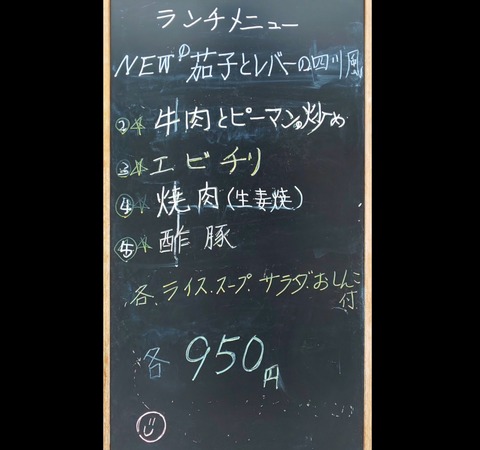 ランチメニュー
NEW① 茄子とレバーの四川風
②☆ 牛肉とピーマンの炒め
③☆ エビチリ
④☆ 焼肉(生姜焼)
⑤☆ 酢豚
各、ライス.スープ.サラダ.おしんこ付
各 950円